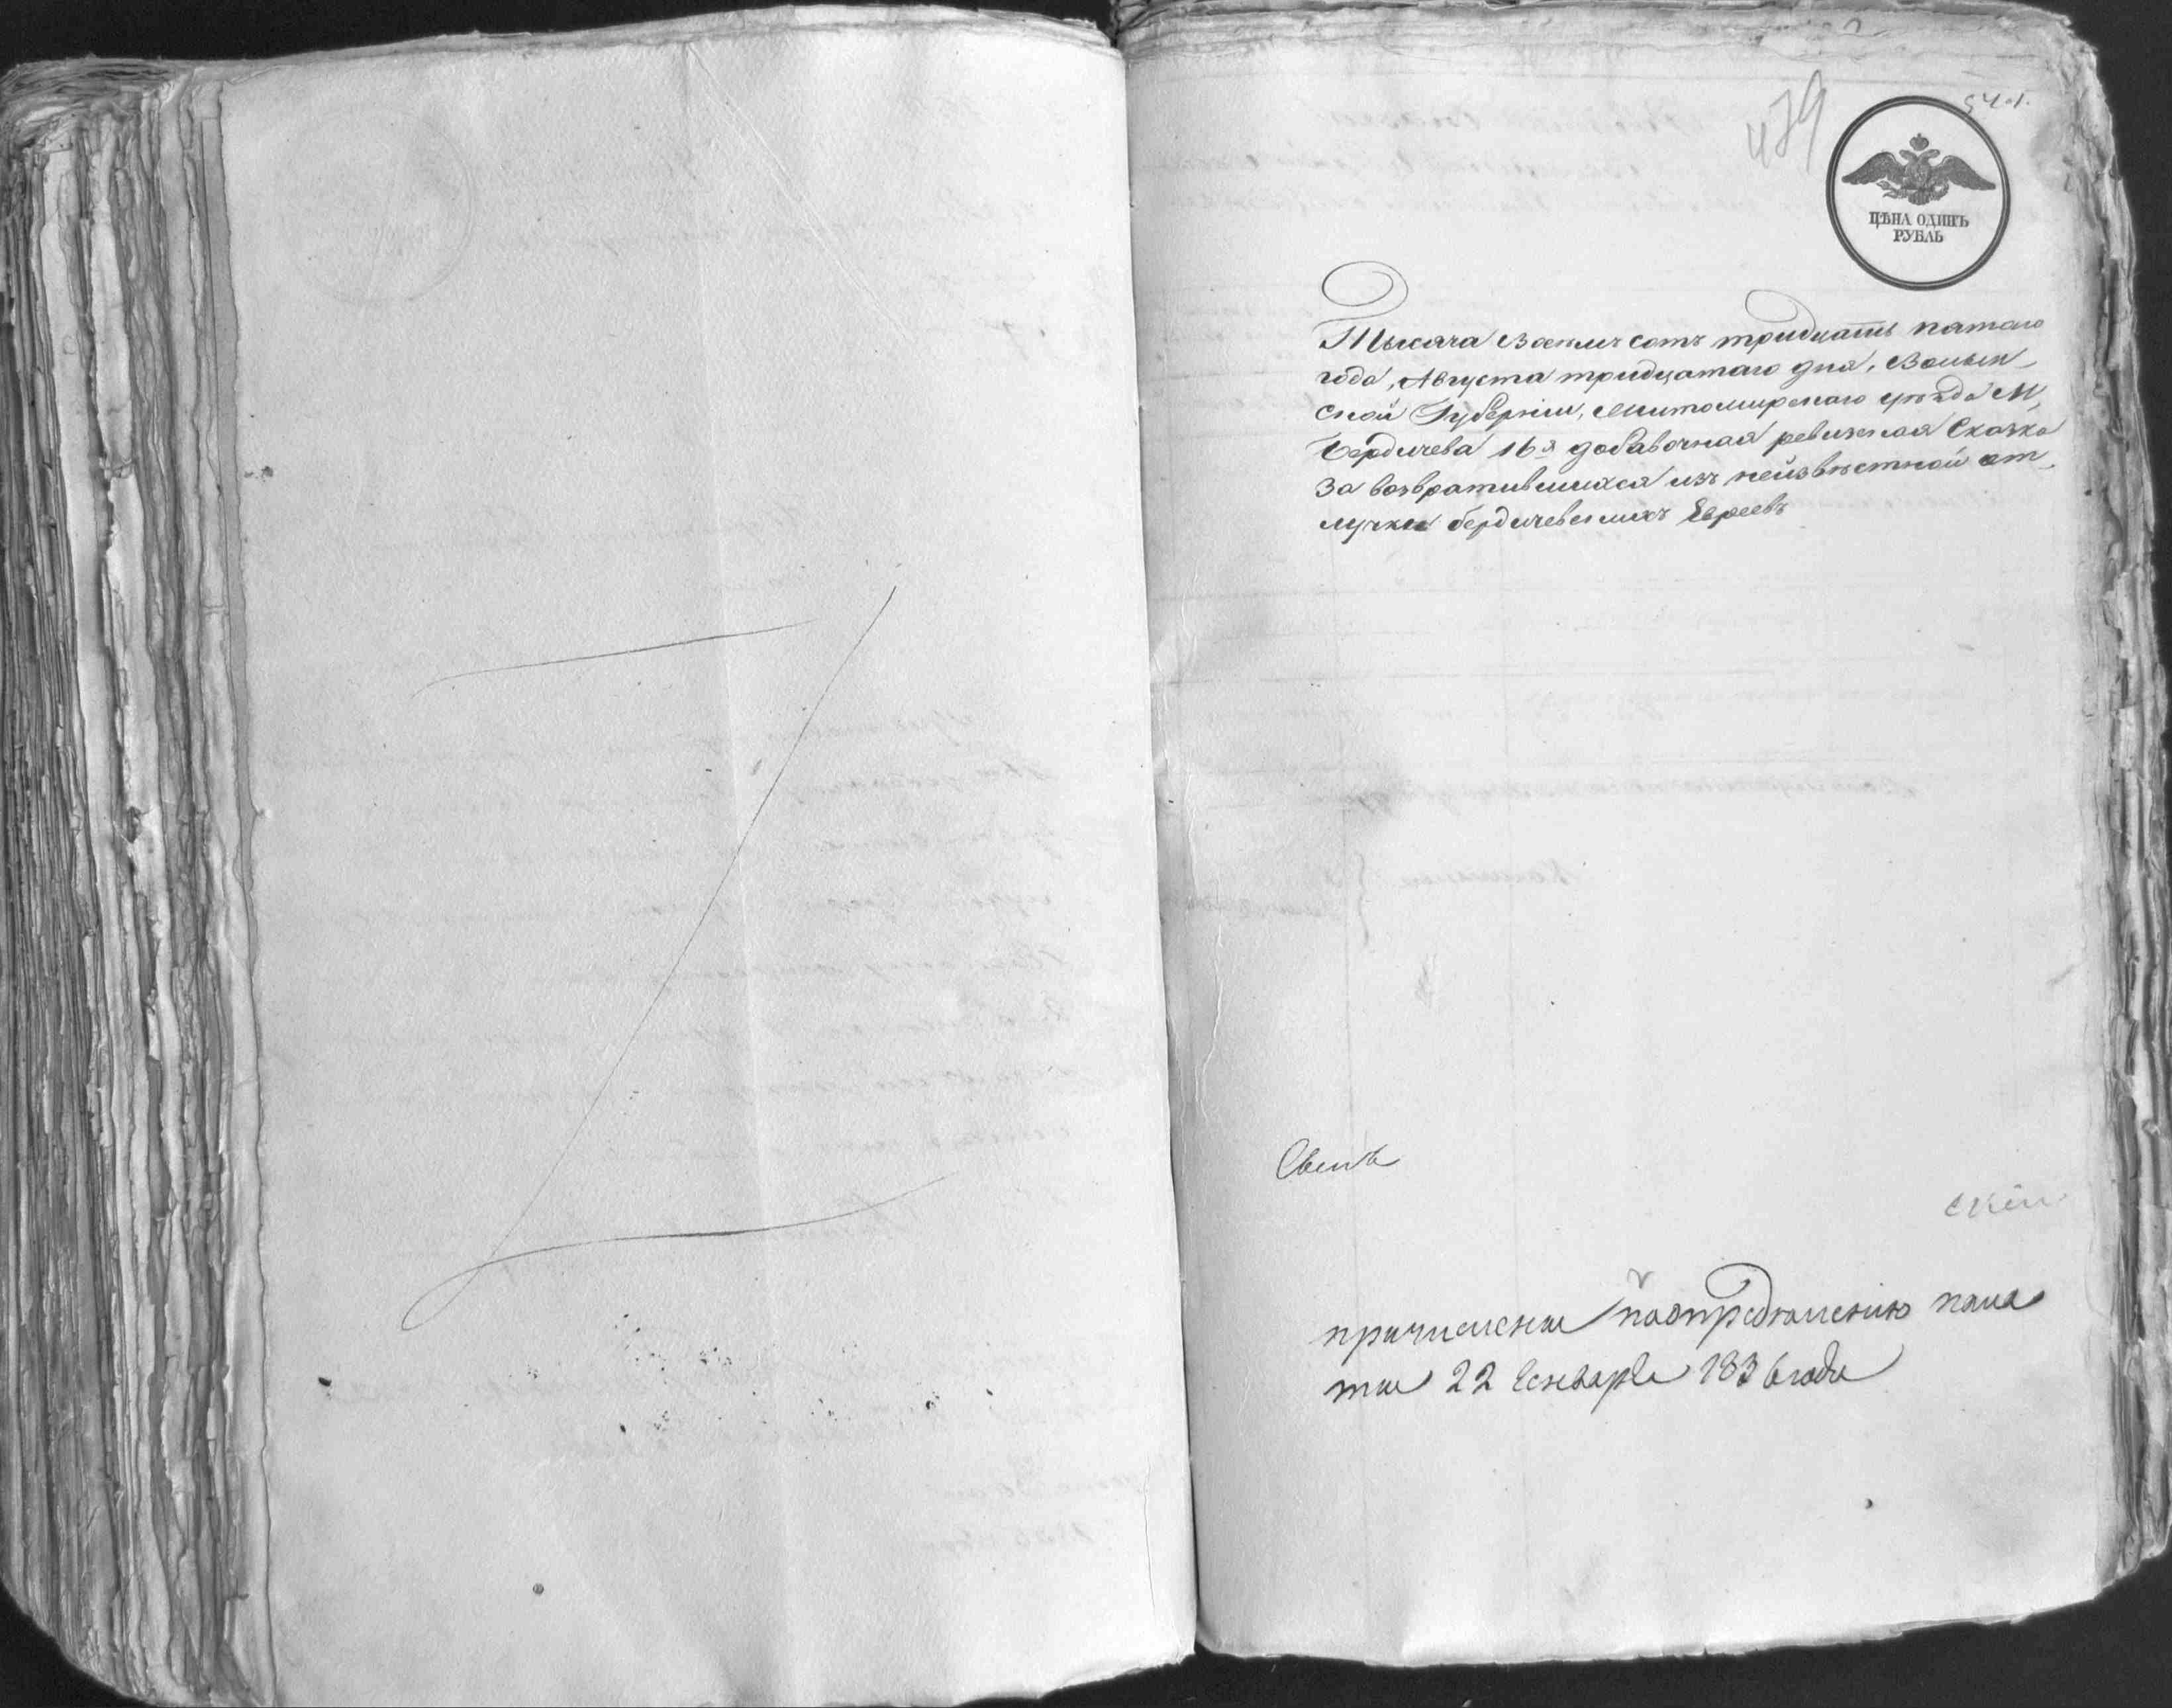 479
541.
ЦѢНА ОДИНЪ
РУБЛЬ
Тысяча восемъ сотъ тридцать пятаго
года, Августа тридцатаго дня, Волын-
ской Губерніи, Житомирскаго уѣзда М,
Бердичева 16я добавочная ревизская Сказка
За возвратившихся изъ неизвѣстной от-
лучки бердичевскихъ Евреевъ
причислены предположенію пала
ты 22 Генваря 1836 года